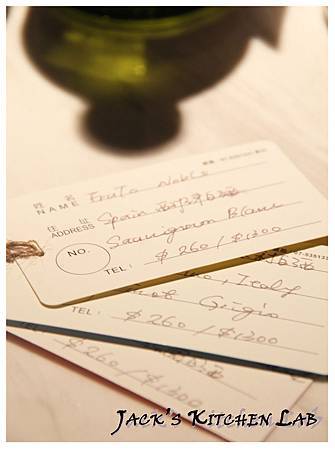 姓 名
NAME Fruto Noble
住 址
ADDRESS Spain 西班牙
NO. Sauvignon Blanc
TEL: $260/$1300
, Italy
Pinot Grigio
TEL: $260/$1300
$260/$1300
JACK'S KITCHEN LAB